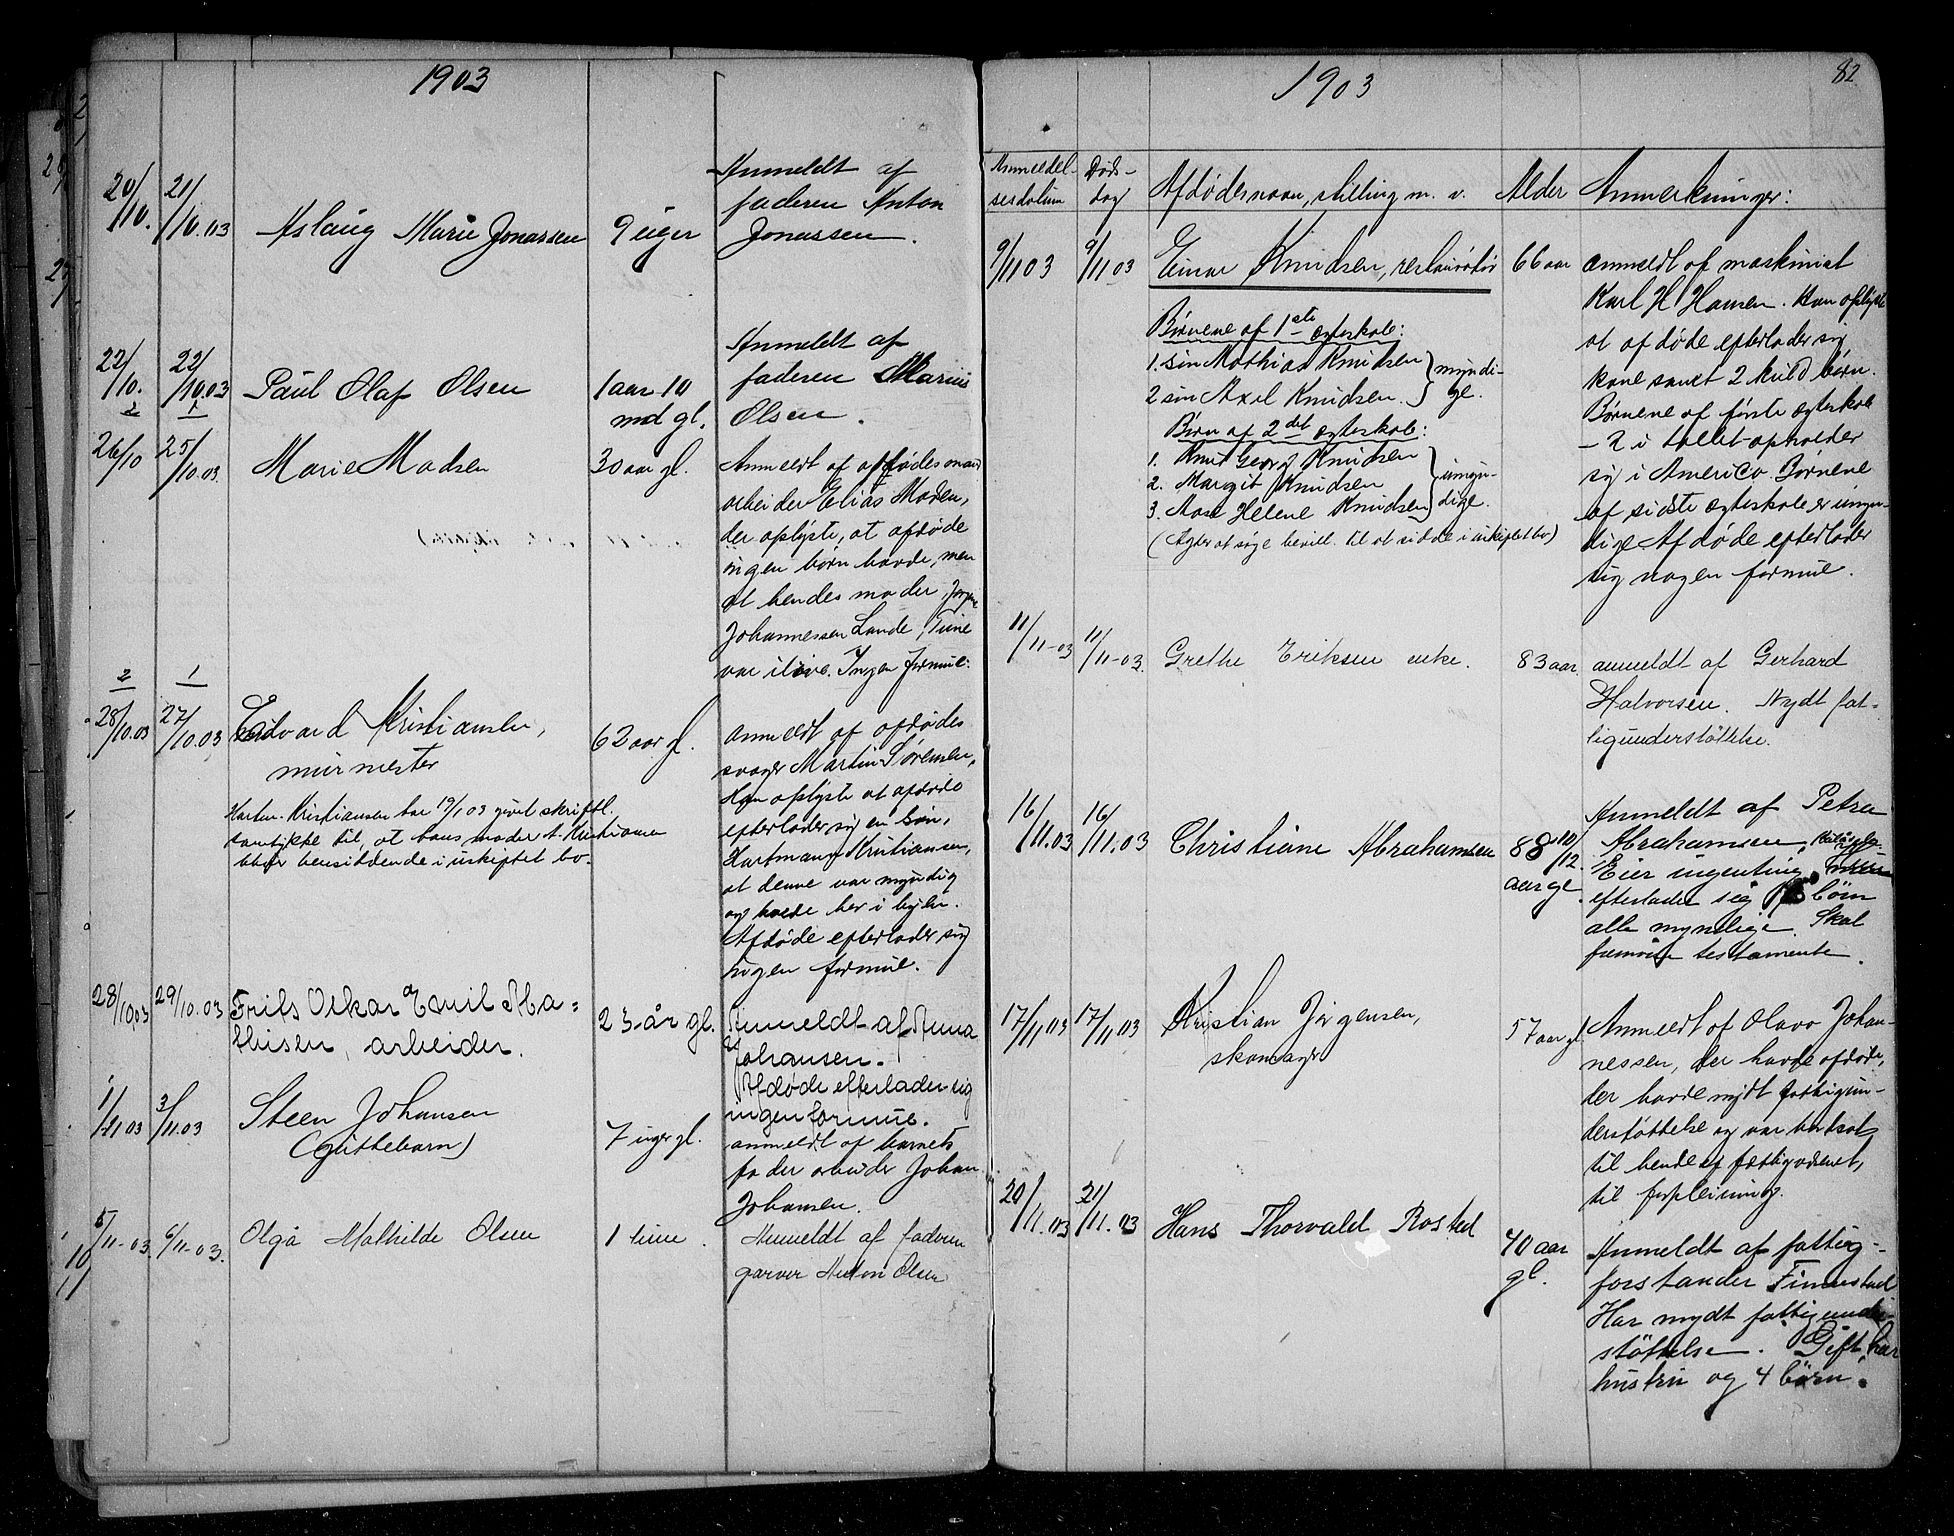 1903
20/10. 21/10.03 Aslaug Marie Jonassen 9 uger
Anmeldt af
faderen Anton
Jonassen.
22/10. 22/10.03 Paul Olaf Olsen 1 aar 10
md gl.
Anmeldt af
faderen Marius
Olsen.
2 1
26/10 25/10.03. Marie Madsen 30 aar gl.
Anmeldt af afdødes mand
arbeider Elias Madsen,
der oplyste, at afdøde
ingen børn havde, men
at hendes moder
Johannessen Lande, Tune
var ilive. Ingen formue.
2 1
28/10.03 27/10.03 Edvard Kristiansen,
murmester
62 aar gl.
Hartm. Kristiansen har 19/1 03 givet skriftl.
samtykke til, at hans moder f. Kristiansen
bliver hensiddende i uskiftet bo.
anmeldt af afdødes
svoger Martin Sørensen,
Han oplyste at afdøde
efterlader sig en søn,
Hartmann Kristiansen,
at denne var myndig
og boede her i byen.
Afdøde efterlader sig
ingen formue.
28/10.03 29/10.03 Frits Oskar Emil Ma=
thisen, arbeider.
23 år gl.
Anmeldt af Anna
Johansen.
Afdøde efterlader sig
ingen formue.
1/11 03 3/11.03 Steen Johansen
(Guttebarn)
7 uger gl.
anmeldt af barnets
fader arbeider Johan
Johansen.
5/11-03. 6/11-03. Olga Mathilde Olsen 1 time.
Anmeldt af faderen
garver Anton Olsen
1903
82
Anmeldel-
sesdatum
Døds-
dag
Afdødes navn, stilling m. v. Alder Anmerkninger:
9/11 03 9/11 03 Einar Knudsen, restauratør 66 aar
Børnene af 1ste egteskab:
1. søn Mathias Knudsen
2 søn Axel Knudsen.
myndi-
ge.
Børn af 2det egteskab:
1. Knut Georg Knudsen
2. Margit Knudsen
3. Aase Helene Knudsen
umyn-
dige.
(Agter at søge bevill. til at sidde i uskiftet bo)
anmeldt af maskinist
Karl H Hansen. Han oplyste
at afdøde efterlader sig
kone samt 2 kuld børn.
Børnene af første egteskab
- 2 i tallet - opholder
sig i America. Børnene
af sidste egteskab er umyn-
dige. Afdøde efterlader
sig nogen formue.
11/11-03 11/11-03. Grethe Eriksen enke. 83 aar.
anmeldt af Gerhard
Halvorsen. Nydt fat-
tigunderstøttelse.
16/11.03 16/11.03 Christiane Abrahamsen 88 10/12.
aar gl.
Anmeldt af Petra
Abrahamsen,
Eier ingenting.
efterlader sig børn
alle myndige. Skal
testamente.
17/11 03 17/11 03 Kristian Jørgensen,
skomager
57 aar gl
Anmeldt af Olava Johan-
nessen, der havde afdøde,
der havde nydt fattigun-
derstøttelse og var bortsat
til hende af fattigvæsenet,
til forpleining.
20/11.03 21/11.03 Hans Thorvald Rosted
40 aar
gl.
Anmeldt af fattig-
forstander Finnestad
Har nydt fattigunder-
støttelse. Gift, har
hustru og 4 børn.